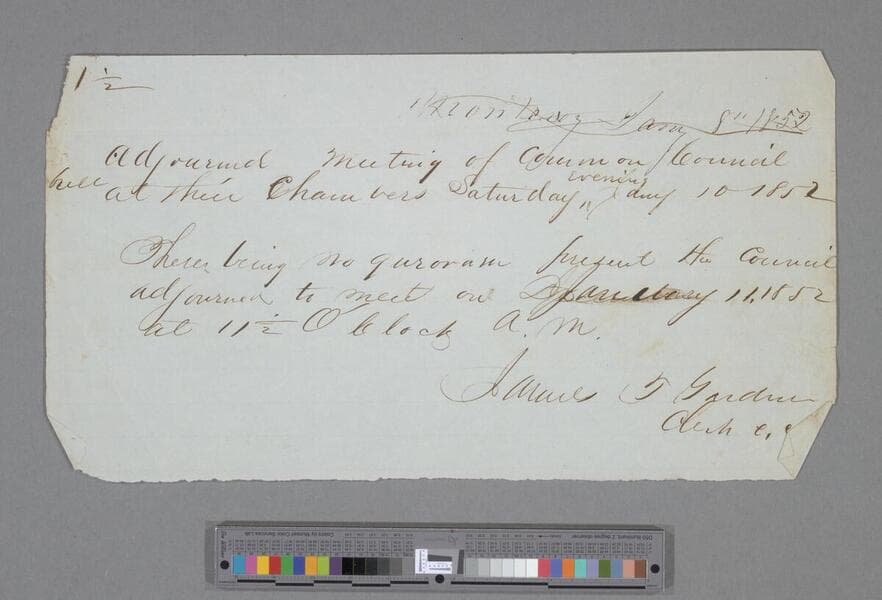 1 1/2
Monterey Jan, 8" 1852
Adjourned Meeting of Common Council
held at their Chambers Saturday evening Jany 10 1852
There being no quroram present the Council
adjourned to meet on January 11, 1852
at 11 1/2 O'Clock A. M.
James T Gardner
Clerk C, C